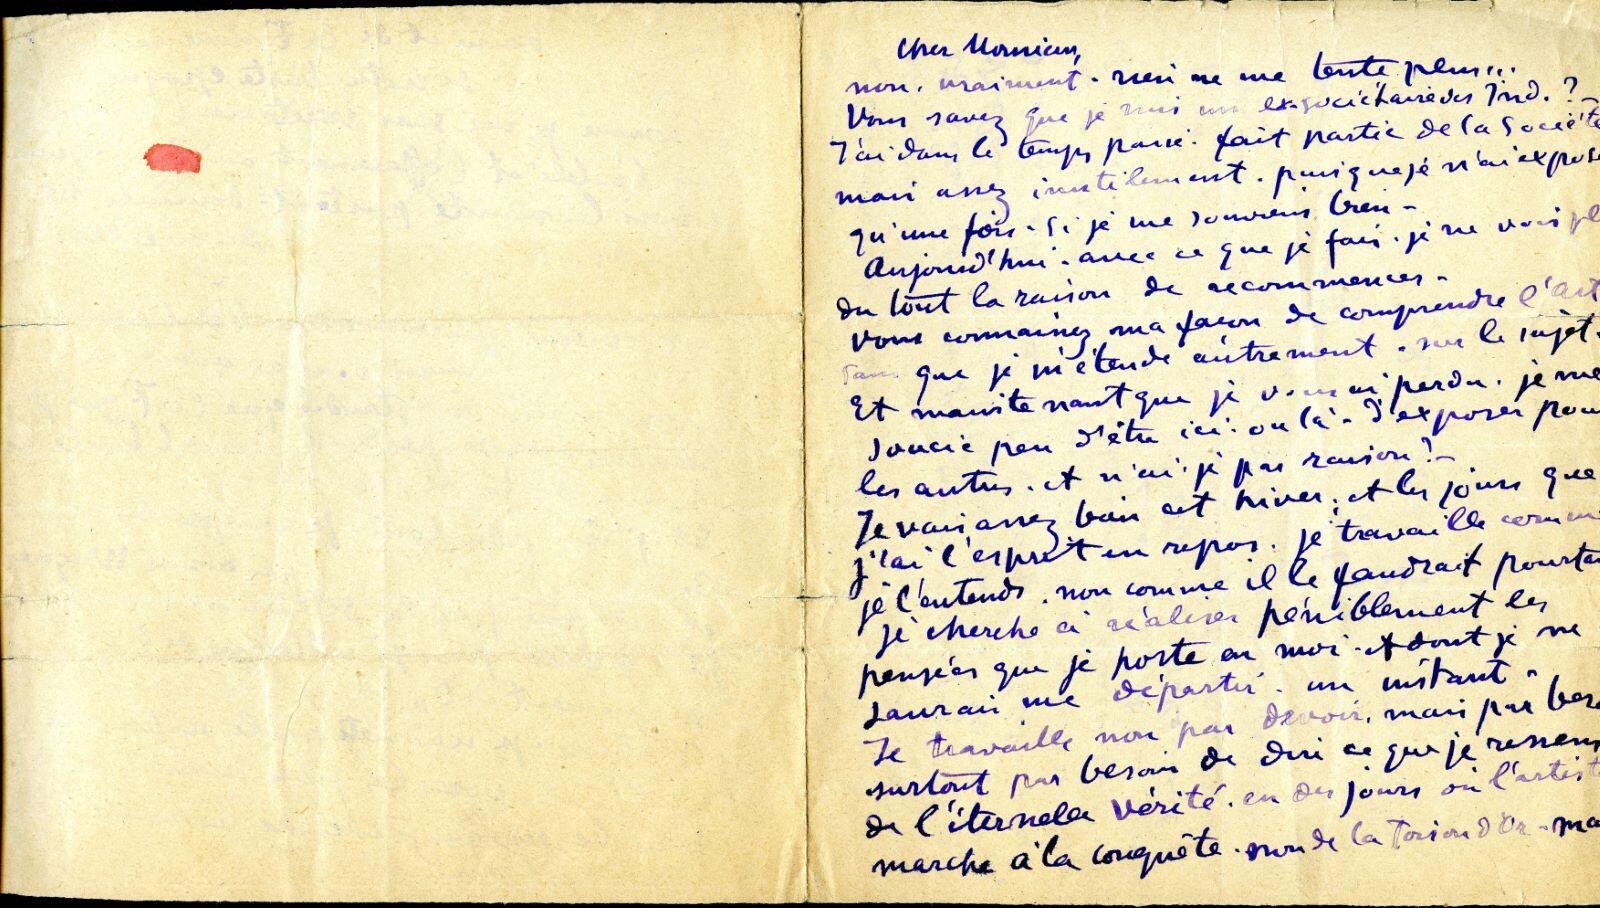 Cher Monsieur,
non, vraiment. rien ne me tente plus...
Vous savez que je suis un ex-sociétaire des Ind. ? -
J'ai dans le temps passé. fait partie de la Société
mais assez inutilement. puisque je n'ai exposé
qu'une fois. Si je me souviens bien -
Aujourd'hui. avec ce que je fais. je ne vois pl
du tout la raison de recommencer -
Vous connaissez ma façon de comprendre l'art
sans que je m'étende autrement. sur le sujet.
Et maintenant que je perdu. je me
soucie peu d'être ici. ou là - d'exposer pour
les autres. et n'ai-je pas raison ? -
Je vais assez bien cet hiver, et les jours que
j'ai l'esprit en repos. je travaille comme
je l'entends. non comme il le faudrait pourta
je cherche à réaliser péniblement les
pensées que je porte en moi. et dont je ne
saurais me départir. un instant -
Je travaille non par devoir, mais par beso
surtout par besoin de dire ce que je ressens
de l'éternelle vérité. en des jours où l'artist
marche à la conquête. non de la Toison d'Or - ma